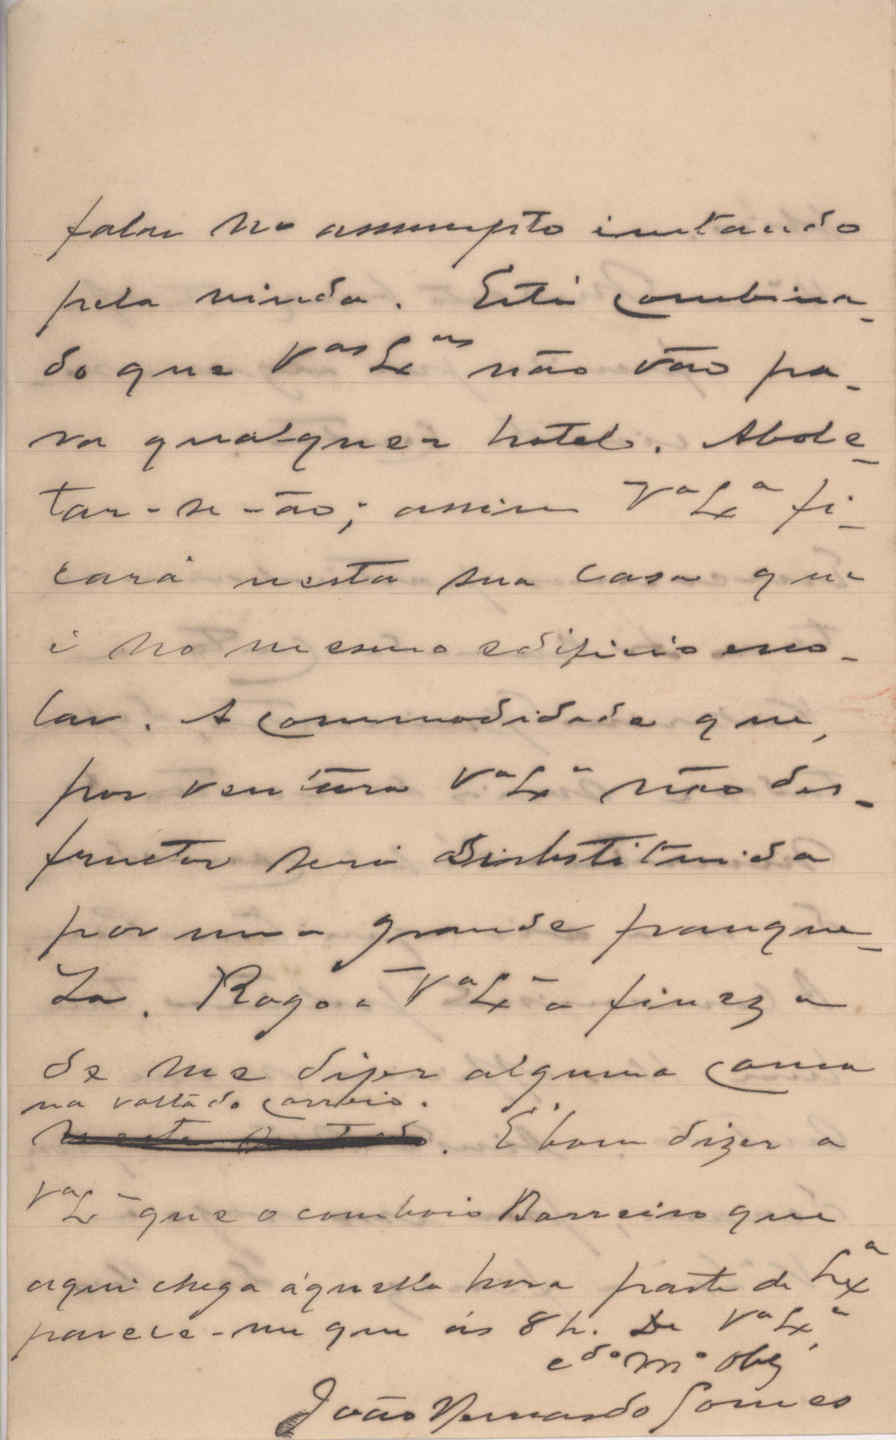 falar no assumpto instando
pela vinda. Está combina-
do que V.as Ex.as não vão pa-
ra qualquer hotel. Abole-
tar-se-ão; assim V.a Ex.a fi-
cará nesta sua casa que
é no mesmo edificio esco-
lar. A commodidade que,
por ventura V.a Ex.a não des-
fructar será substituida
por uma grande franque-
za. Rogo a V.a Ex.a a fineza
de me dizer alguma cousa
na volta do correio.
. É bom dizer a
V.a Ex.a que o comboio Barreiro que
aqui chega áquella hora parte de Lx.a
parece-me que ás 8 h. De V.a Ex.a
c.do m.o obg.
João Gomes